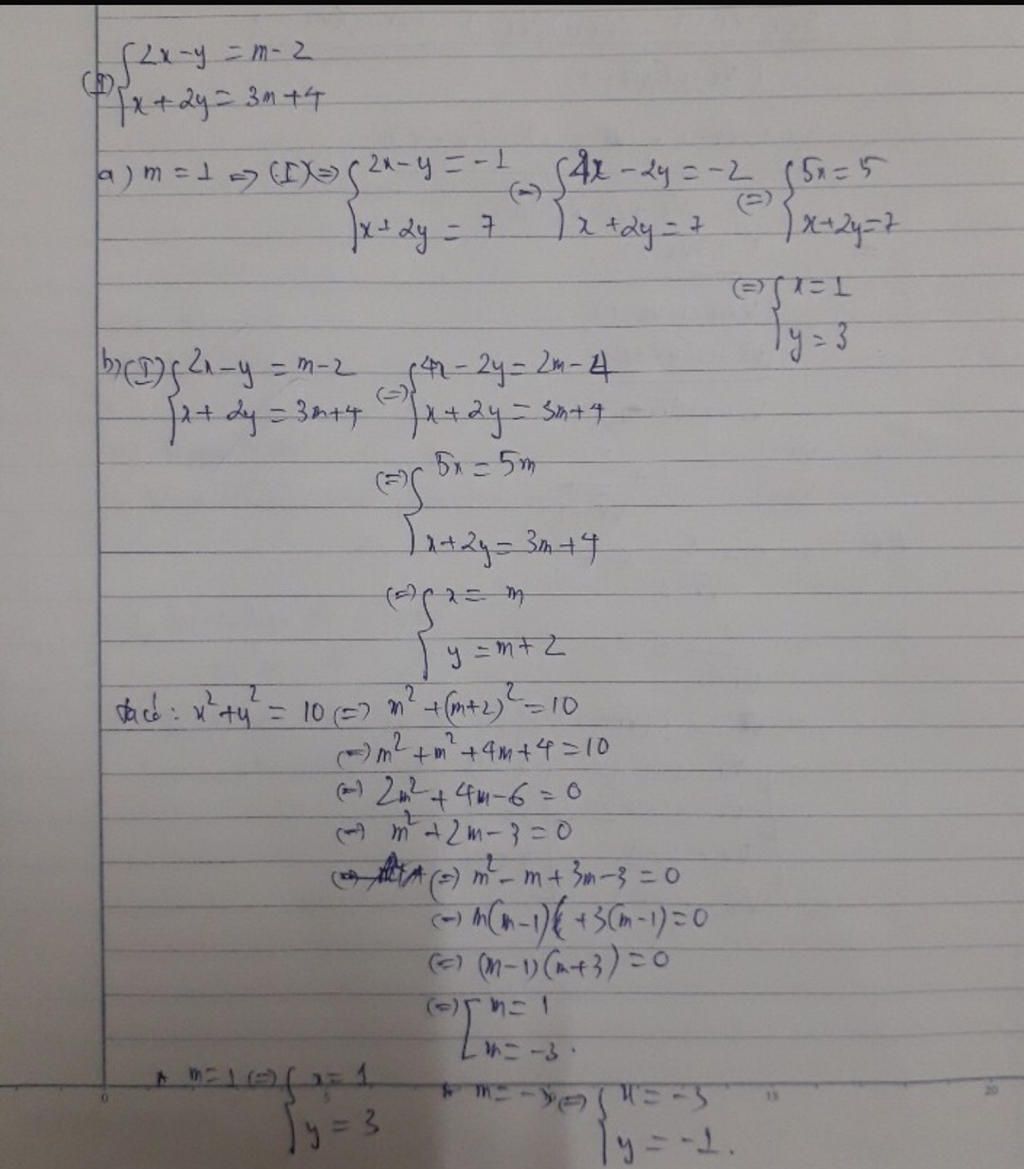 (I) { 2x - y = m - 2
x + 2y = 3m + 4
a) m = 1 => (I) <=> { 2x - y = -1 (=) { 4x - 2y = -2 (=) { 5x = 5
x + 2y = 7 x + 2y = 7 x + 2y = 7
(=) { x = 1
y = 3
b) (I) { 2x - y = m - 2 (=) { 4x - 2y = 2m - 4
x + 2y = 3m + 4 x + 2y = 3m + 4
(=) { 5x = 5m
x + 2y = 3m + 4
(=) { x = m
y = m + 2
Ta có: x² + y² = 10 (=) m² + (m+2)² = 10
(=) m² + m² + 4m + 4 = 10
(=) 2m² + 4m - 6 = 0
(=) m² + 2m - 3 = 0
(=) m² - m + 3m - 3 = 0
(=) m(m-1) + 3(m-1) = 0
(=) (m-1)(m+3) = 0
(=) [ m = 1
m = -3.
* m = 1 (=) { x = 1 * m = -3 (=) { x = -3
y = 3 y = -1.
0 5 15 20